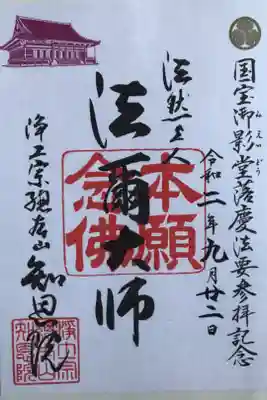 国宝御影堂落慶法要参拝記念
みえいどう
令和二年九月廿二日
法然上人
法爾大師
本願
念佛
浄土宗總本山
知恩院